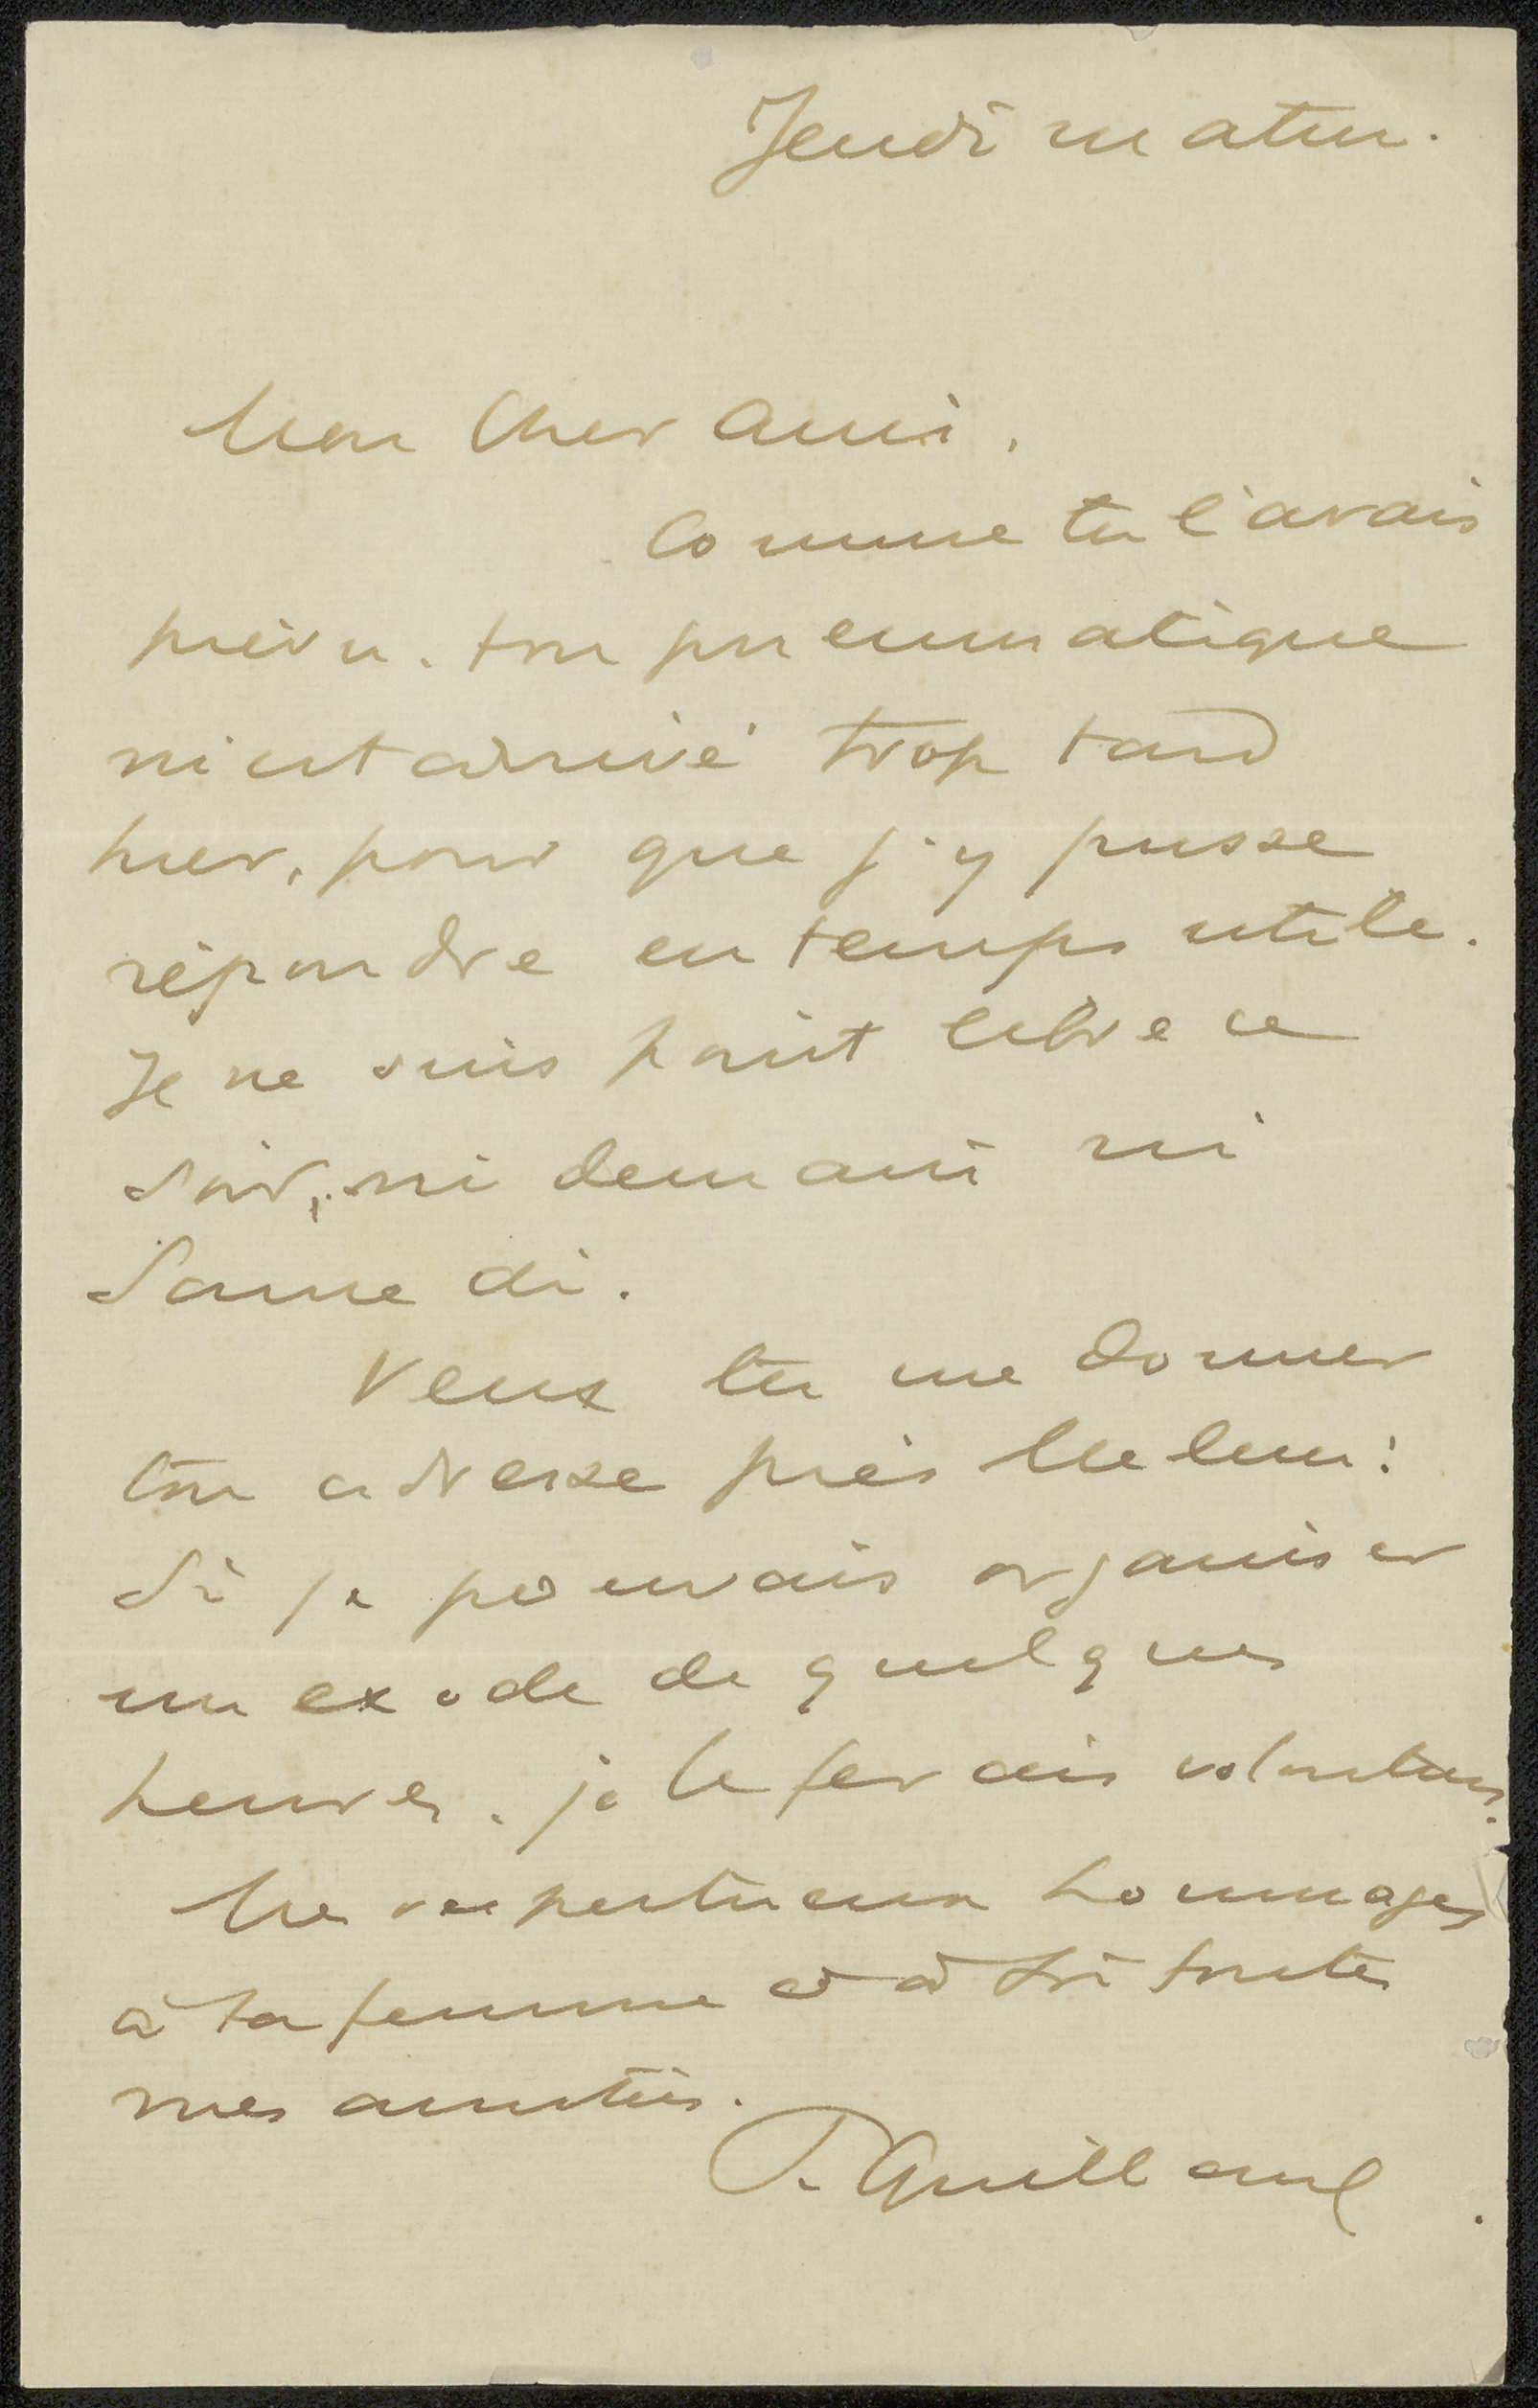 Jeudi matin.
Mon cher ami,
Comme tu l'avais
prévu, ton pneumatique
m'est arrivé trop tard
hier, pour que j'y pusse
répondre en temps utile.
Je ne suis point libre ce
soir, ni demain ni
Samedi.
Veux tu me donner
ton adresse près Melun:
Si je pouvais organiser
un exode de quelques
heures, je le ferais volontiers.
Mes respectueux hommages
à ta femme et à toi toutes
mes amitiés.
P. Guillaud